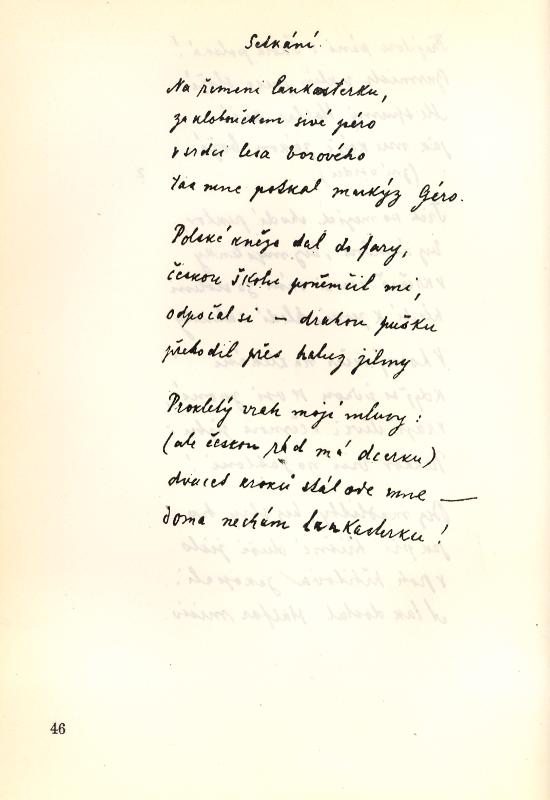 Setkání.
Na řemeni lankasterku,
za kloboučkem sivé péro
v srdci lesa borového
taa mne potkal markýz Géro.
Polské kněze dal do fary,
českou školu poněmčil mi,
odpočal si – drahou pušku
přehodil přes haluz jilmy
Prokletý vrah mojí mluvy:
(ale českou rád má dcerku)
dvacet kroků stál ode mne —
doma nechám lankasterku!
46